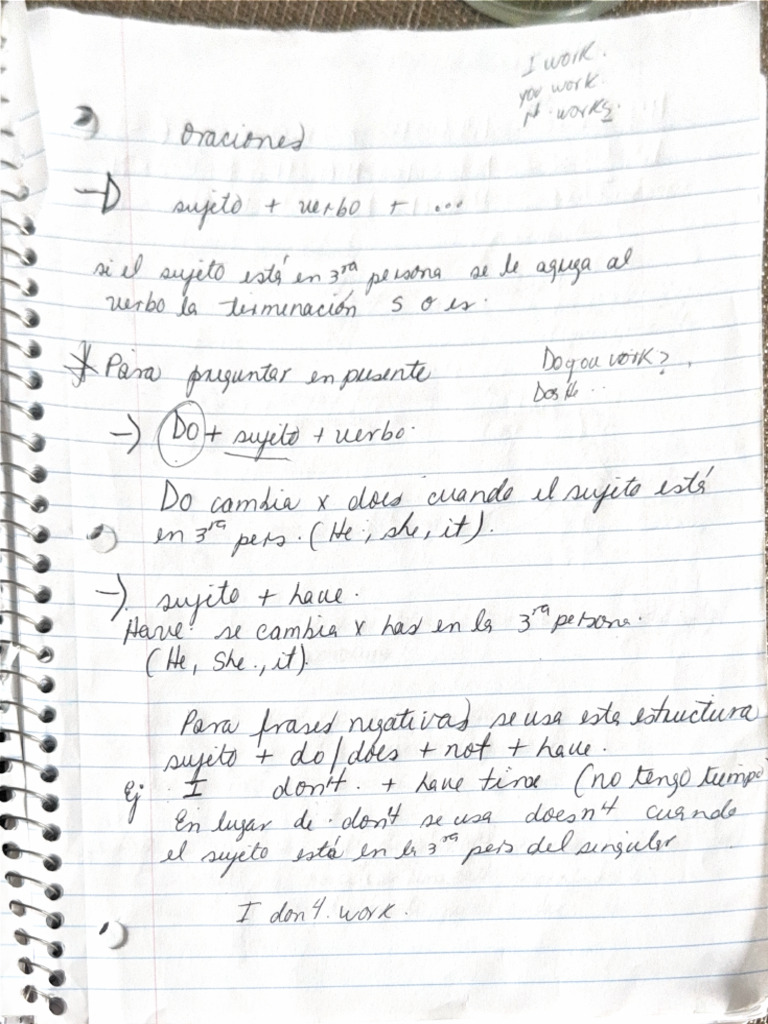 I work.
you work.
works.
oraciones
→ sujeto + verbo + ...
si el sujeto está en 3ra persona se le agrega al
verbo la terminación s o es.
* Para preguntar en presente
Do you work?
Does He ...
→ Do + sujeto + verbo.
Do cambia x does cuando el sujeto está
en 3ra pers. (He, she, it).
→ sujeto + have.
Have se cambia x has en la 3ra persona.
(He, She, it).
Para frases negativas se usa esta estructura
sujeto + do/does + not + have.
Ej I don't + have time (no tengo tiempo
En lugar de don't se usa doesn't cuando
el sujeto está en la 3ra pers del singular
I don't work.